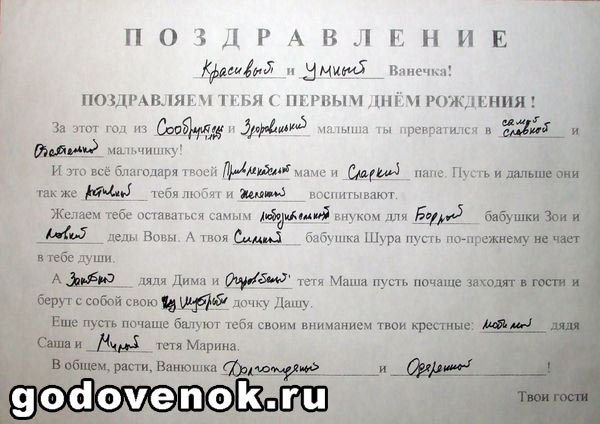 ПОЗДРАВЛЕНИЕ
Красивый и умный Ванечка!
ПОЗДРАВЛЯЕМ ТЕБЯ С ПЕРВЫМ ДНЁМ РОЖДЕНИЯ !
За этот год из и Здоровенький малыша ты превратился в самой славной и
Обаятельной мальчишку!
И это всё благодаря твоей маме и Сладкий папе. Пусть и дальше они
так же Активный тебя любят и желанный воспитывают.
Желаем тебе оставаться самым любознательной внуком для Бодрый бабушки Зои и
ловкий деды Вовы. А твоя Сильный бабушка Шура пусть по-прежнему не чает
в тебе души.
А дядя Дима и тетя Маша пусть почаще заходят в гости и
берут с собой свою дочку Дашу.
Еще пусть почаще балуют тебя своим вниманием твои крестные: любимой дядя
Саша и Милой тетя Марина.
В общем, расти, Ванюшка Долгожданный и Одаренной !
Твои гости
godovenok.ru